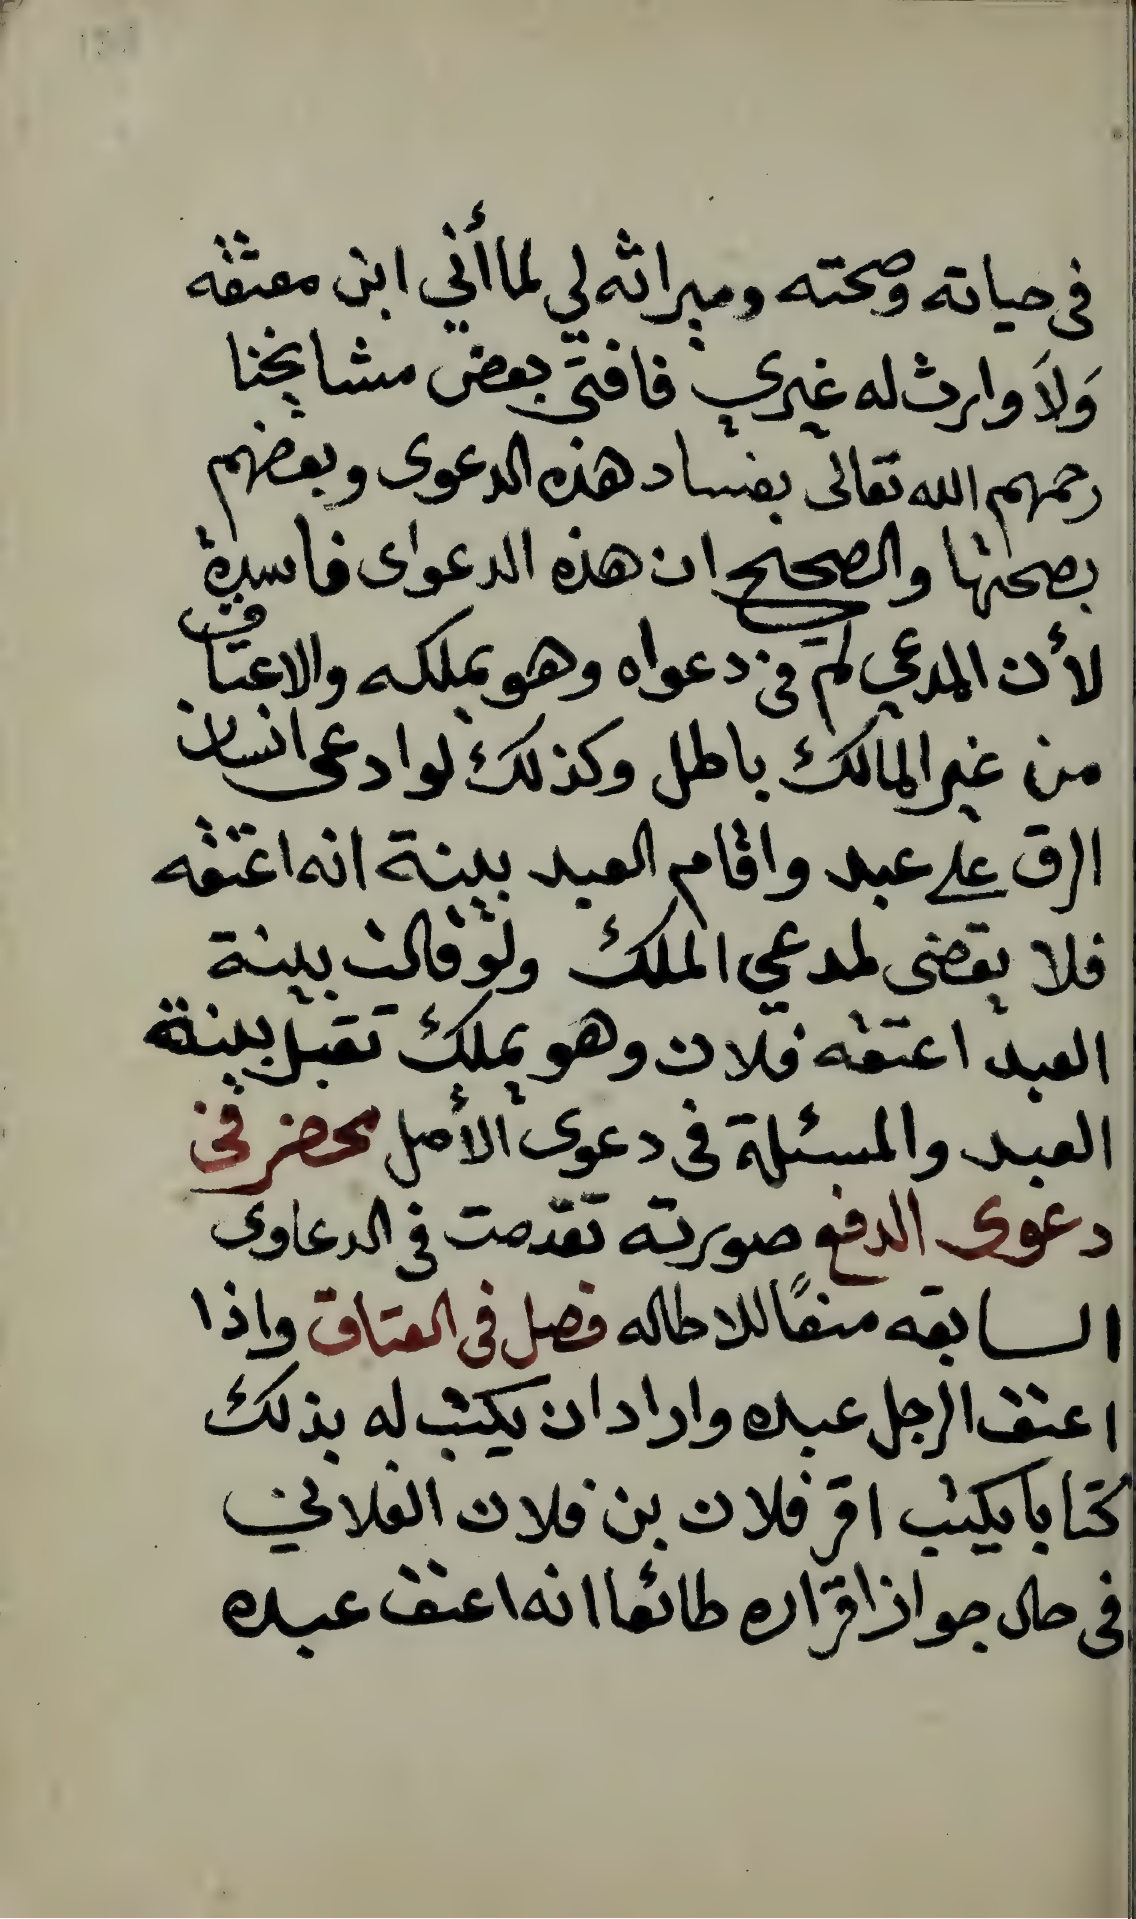 فى حياته وصحته وميراثه لي لما أني ابن معتقه
وَلاَ وارث له غيري فافتى بعض مشايخنا
رحمهم الله تعالى بفساد هذه الدعوى وبعضهم
بصحتها والصحيح ان هذه الدعواى فاسدة
لأن المدعي لم فى دعواه وهو يملكه والاعتاق
من غير المالك باطل وكذلك لو ادعى انسان
الرق على عبد واقام العبد بينة انه اعتقه
فلا يقضى لمدعي الملك ولو قالت بينة
العبد اعتقه فلان وهو يملك تقبل بينة
العبد والمسئلة فى دعوى الأصل محضر فى
دعوى الدفع صورته تقدمت فى الدعاوى
السابقه منعًا للاطاله فصل فى العتاق واذا
اعتق الرجل عبده واراد ان يكتب له بذلك
كتابا يكتب اقر فلان بن فلان الفلاني
فى حال جواز اقراره طائعا انه اعتق عبده